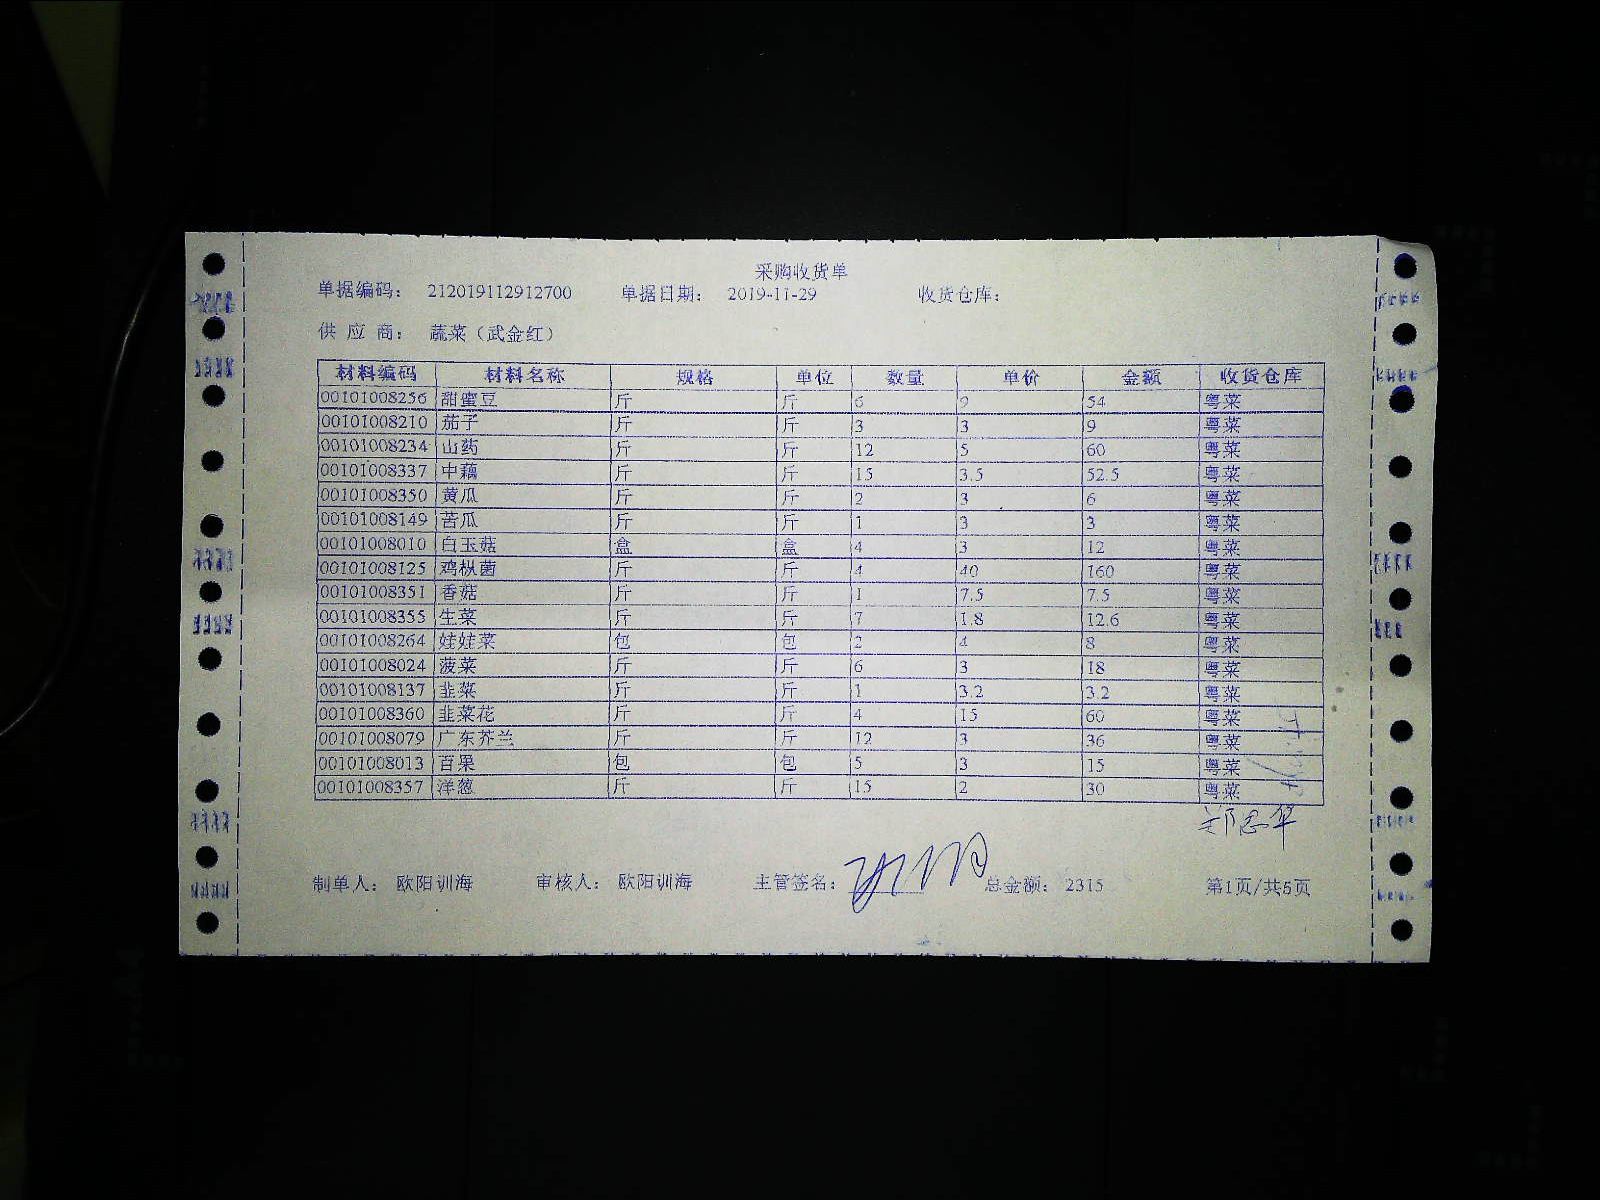 采购收货单
单据编码： 212019112912700 单据日期： 2019-11-29 收货仓库：
供 应 商： 蔬菜（武金红）
材料编码 材料名称 规格 单位 数量 单价 金额 收货仓库
00101008256 甜蜜豆 斤 斤 6 9 54 粤菜
00101008210 茄子 斤 斤 3 3 9 粤菜
00101008234 山药 斤 斤 12 5 60 粤菜
00101008337 中藕 斤 斤 15 3.5 52.5 粤菜
00101008350 黄瓜 斤 斤 2 3 6 粤菜
00101008149 苦瓜 斤 斤 1 3 3 粤菜
00101008010 白玉菇 盒 盒 4 3 12 粤菜
00101008125 鸡枞菌 斤 斤 4 40 160 粤菜
00101008351 香菇 斤 斤 1 7.5 7.5 粤菜
00101008355 生菜 斤 斤 7 1.8 12.6 粤菜
00101008264 娃娃菜 包 包 2 4 8 粤菜
00101008024 菠菜 斤 斤 6 3 18 粤菜
00101008137 韭菜 斤 斤 1 3.2 3.2 粤菜
00101008360 韭菜花 斤 斤 4 15 60 粤菜
00101008079 广东芥兰 斤 斤 12 3 36 粤菜
00101008013 百果 包 包 5 3 15 粤菜
00101008357 洋葱 斤 斤 15 2 30 粤菜
制单人： 欧阳训海 审核人： 欧阳训海 主管签名： 总金额： 2315 第1页/共5页